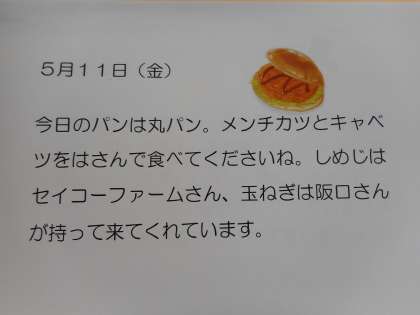 5月11日（金）
今日のパンは丸パン。メンチカツとキャベ
ツをはさんで食べてくださいね。しめじは
セイコーファームさん、玉ねぎは阪口さん
が持って来てくれています。